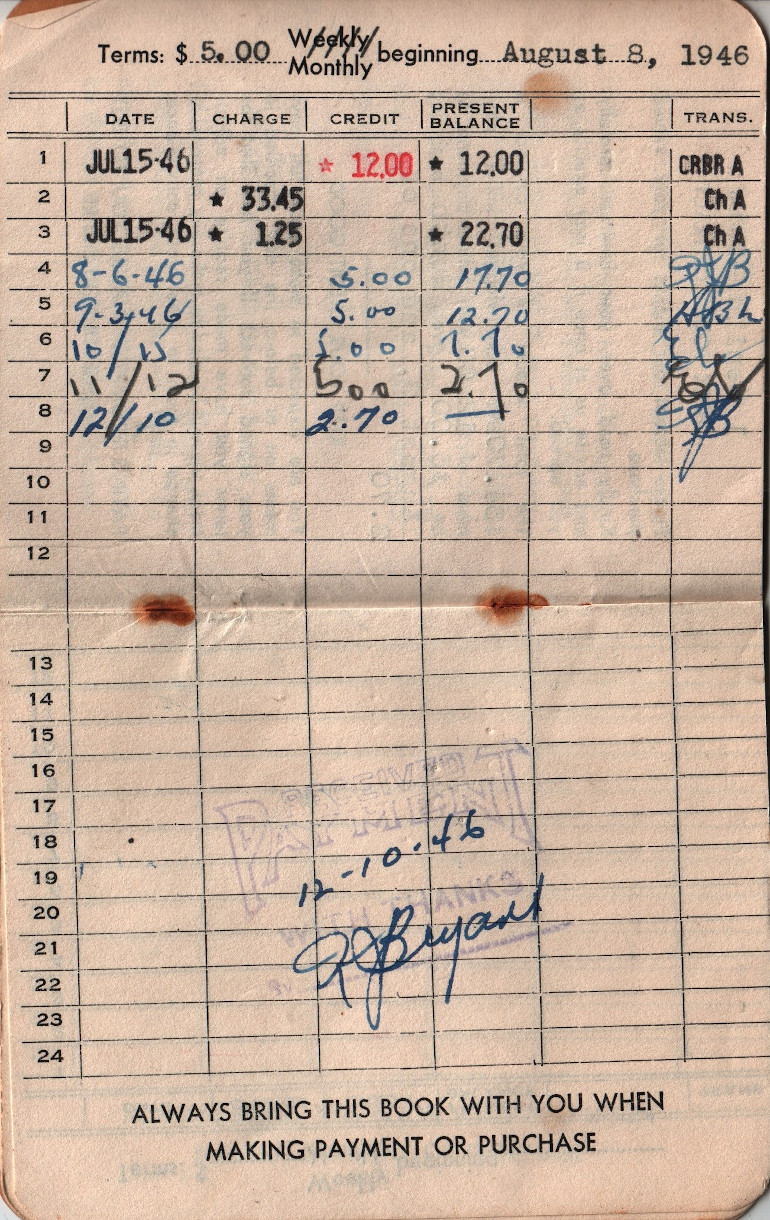 Terms: $ 5.00 Weekly Monthly beginning August 8, 1946
DATE CHARGE CREDIT PRESENT BALANCE TRANS.
1 JUL15-46 ☆ 12.00 ★ 12.00 CRBR A
2 ★ 33.45 Ch A
3 JUL15-46 ★ 1.25 ★ 22.70 Ch A
4 8-6-46 5.00 17.70 RJB
5 9-3-46 5.00 12.70
6 10/15 5.00 7.70
7 11/12 500 2.70
8 12/10 2.70 — RJB
9
10
11
12
13
14
15
16
17
18
19
20
21
22
23
24
RECEIVED
PAYMENT
12-10-46
WITH THANKS
RJBryant
BY
ALWAYS BRING THIS BOOK WITH YOU WHEN
MAKING PAYMENT OR PURCHASE